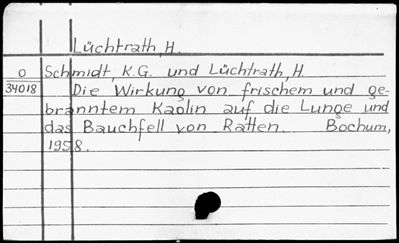 Lüchtrath, H.
O Schmidt, K.G. und Lüchtrath, H.
34018 Die Wirkung von frischem und ge-
branntem Kaolin auf die Lunge und
das Bauchfell von Ratten. Bochum,
1958.